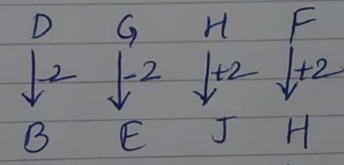 D G H F
-2 -2 +2 +2
B E J H